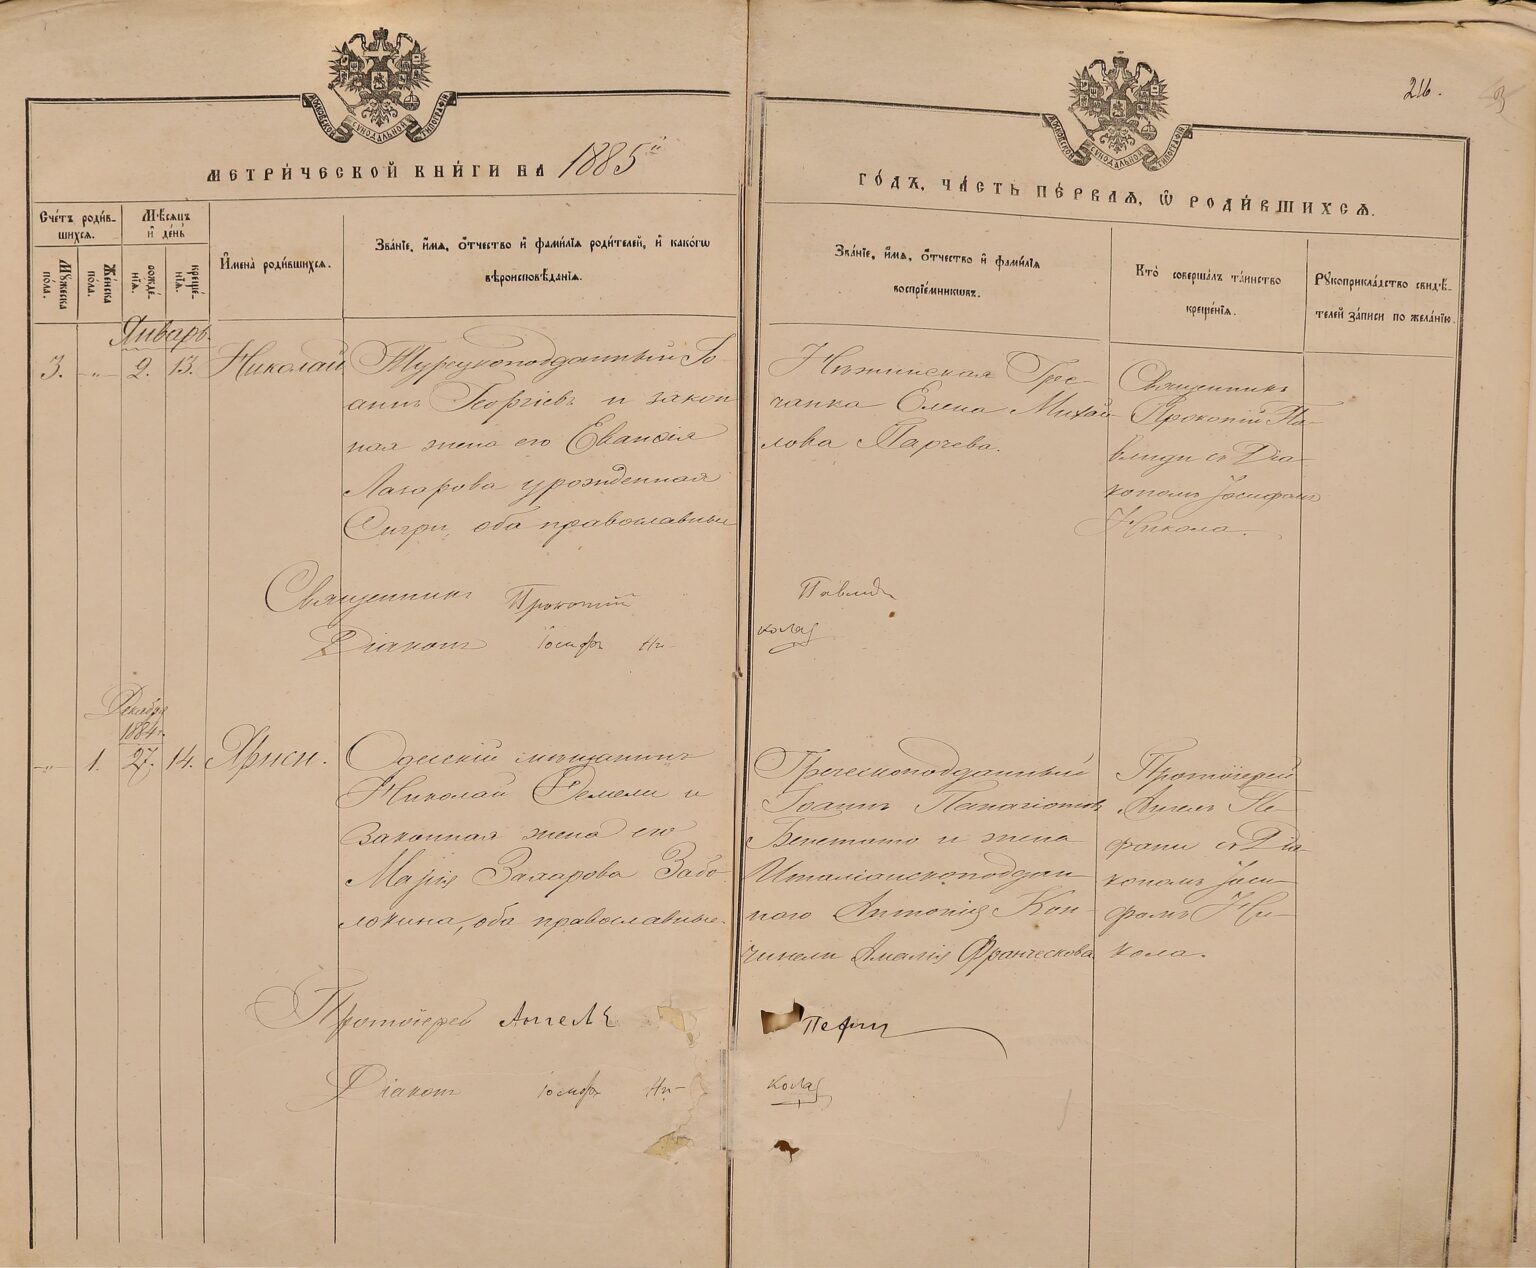 МОСКОВСКОЙ СѴНОДАЛЬНОЙ ТИПОГРАФІИ
МОСКОВСКОЙ СѴНОДАЛЬНОЙ ТИПОГРАФІИ
216.
МЕТРИ́ЧЕСКОЙ КНИ́ГИ НА 1885й
ГО́ДЪ, ЧА́СТЬ ПЕ́РВАѦ, Ѽ РОДИ́ВШИХСѦ.
Сче́тъ роди́в-
шихсѧ.
Мꙋжеска
пола.
Же́нска
пола.
Мѣ́сѧцъ
и҆ де́нь
рожде́-
нїѧ.
креще́-
нїѧ.
И҆мена̀ роди́вшихсѧ.
Зва́нїе, и҆́мѧ, ѻ҆́тчество и҆ фами́лїѧ роди́телей, и҆ како́гѡ
вѣроисповѣ́данїѧ.
Зва́нїе, и҆́мѧ, ѻ҆́тчество и҆ фами́лїѧ
воспрїе́мникѡвъ.
Кто̀ соверша́лъ та́инство
креще́нїѧ.
Рꙋкоприкла́дство свидѣ́-
телей за́писи по жела́нїю.
Январь.
3. „ 9. 13. Николай
Турецкоподданный Іо-
аннъ Георгіевъ и закон
ная жена его Евансія
Лазарова урожденная
Сигри, оба православные
Нѣжинская Гре-
чанка Елена Михай
лова Парчева.
Священникъ
Прокопій Па-
влиди съ Діа-
кономъ Іосифомъ
Никола.
Священникъ Прокопій Павлиди
Діаконъ Іосифъ Ни-колаѣ
Декабря
1884г.
„ 1. 27. 14. Фиси.
Одесскій мѣщанинъ
Николай Семели и
законная жена его
Марія Захарова Забо-
локина, оба православные.
Греческоподданный
Іоаннъ Панагіотовъ
Бенетато и жена
Италіанскоподдан-
ного Антонія Кон-
чинели Амалія Франческова
Протоіерей
Ангелъ Пе-
фани съ Діа-
кономъ Іоси-
фомъ Ни-
кола.
Протоіерей Ангелъ Пефани
Діаконъ Іосифъ Ни-колаѣ